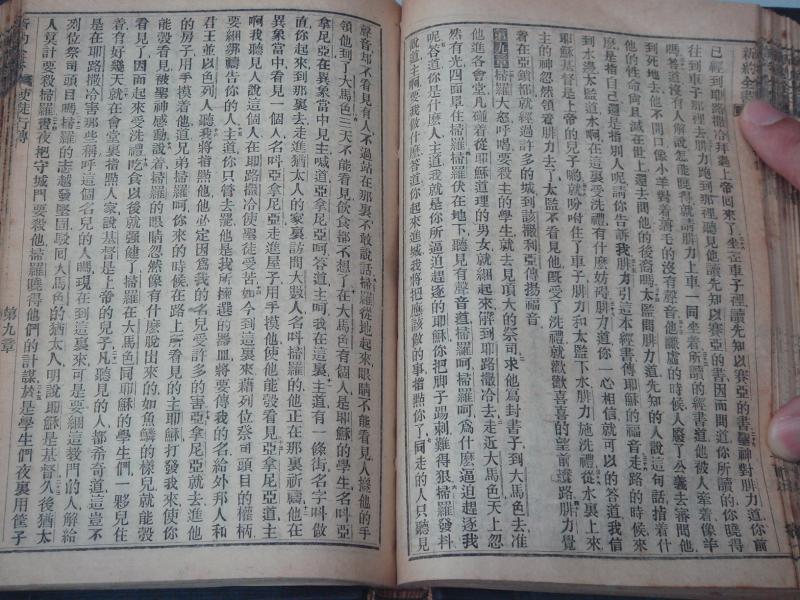 新約全書
已經到耶路撒冷拜過上帝回來了坐在車子裡讀先知以賽亞的書聖神對腓力道你前
往到車子那裡去腓力跑到那裡聽見他讀先知以賽亞的書因而問道你所讀的你曉得
嗎答道沒有人解說怎能曉得就請腓力上車一同坐着所讀的經書道他被人牽着像羊
到死地去他不開口像小羊對着剪毛的沒有聲音他謙虛的時候人廢了公義去審問他
他的性命尚且滅在世上還去問他的後裔嗎太監問腓力道先知的人說這句話指着什
麽是指自己還是指別人呢請你告訴我腓力引這本經書傳耶穌的福音走路的時候來
到水邊太監道水啊在這裏受洗禮有什麽妨得腓力道你一心相信就可以的答道我信
耶穌基督是上帝的兒子喲就吩咐住了車子腓力和太監下水腓力施洗禮從水裏上來
主的神忽然領着腓力去了太監不看見他既受了洗禮就歡歡喜喜的望前邊路腓力覺
著在亞鎖都就經過許多的城到該撒利亞傳揚福音
第九章掃羅大怒呼喝要殺主的學生就去見頂大的祭司求他寫封書子到大馬色去准
他進各會堂凡碰着從耶穌道理的男女就綑起來解到耶路撒冷去走近大馬色天上忽
然有光四面罩住掃羅掃羅伏在地下聽見有聲音道掃羅呵掃羅呵爲什麽逼迫趕逐我
呢答道你是什麽人主道我就是你所逼迫趕逐的耶穌你把脚子踢刺難得狠掃羅發抖
說道主啊要我做什麽答道你起來進城我將把應該做的事指點你了同走的人只聽見
聲音却不看見有人不過站在那裏不敢說話掃羅從地起來眼睛不能看見人攙他的手
領他到了大馬色三天不能看見飲食都不想了在大馬色有個人是耶穌的學生名叫亞
拿尼亞在異象當中見主喊道亞拿尼亞呵答道主呵我在這裏主道有一條街名字叫做
直你起來到那裏去走進猶太人的家裏訪問大數人名叫掃羅的他正在那裏祈禱他在
異象當中看見一個人名叫亞拿尼亞走進屋子用手摸他使他能彀看見亞拿尼亞道主
啊我聽見人說這個人在耶路撒冷使聖徒受苦如今到這裏來藉列位祭司頭目的權柄
要綑綁禱告你的人主道你只管去罷他是我所揀選的器皿將要傳我的名給外邦人和
君王並以色列人聽我將指點他他必定因爲我的名兒受許多的害亞拿尼亞就去進他
的房子用手摸着他道兄弟掃羅呵你來的時候在路上所看見的主耶穌打發我來使你
能彀看見被聖神感動說着掃羅的眼睛忽然像有什麽脫出來的如魚鱗的樣兒就能彀
看見了因而起來受洗禮吃食以後就强健了掃羅在大馬色同耶穌的學生們一夥兒住
着有好幾天就在會堂裏指點人家說基督是上帝的兒子凡聽見的人都希奇道這豈不
是在耶路撒冷害那些稱呼這個名兒的人嗎現在到這裏來可是要綑這穀門的人解給
列位祭司頭目嗎掃羅的志越發堅固駁同大馬色的猶太人明說耶穌是基督久後猶太
人算計要殺掃羅晝夜把守城門要殺他掃羅曉得他們的計謀於是學生們夜裏用筐子
使徒行傳
第九章